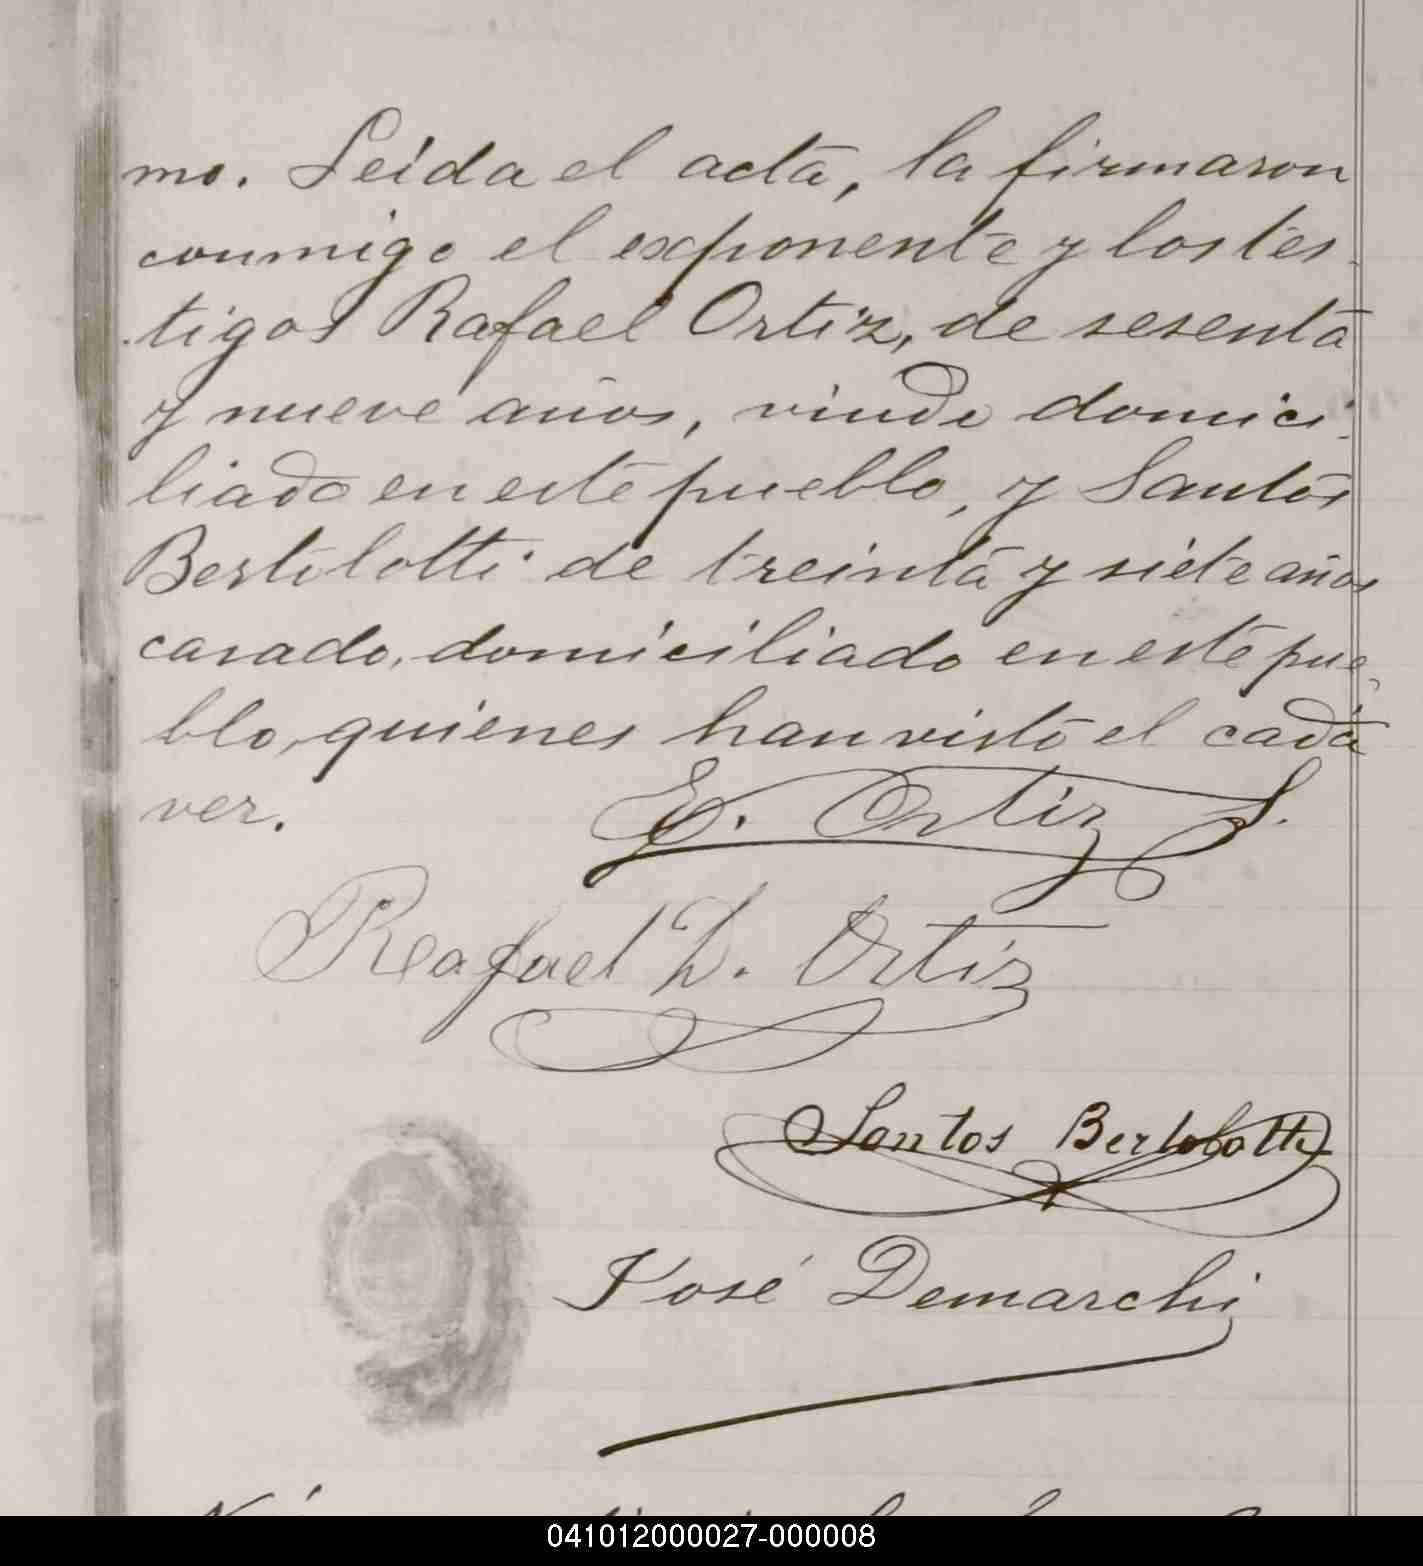 mo. Leída el acta, la firmaron
conmigo el exponente y los tes-
tigos Rafael Ortiz, de sesenta
y nueve años, viudo domici-
liado en este pueblo, y Santos
Bertolotti de treinta y siete años
casado, domiciliado en este pue-
blo, quienes han visto el cadá
ver. E. Ortiz S.
Rafael D. Ortiz
Santos Bertolotti
José Demarchi
041012000027-000008